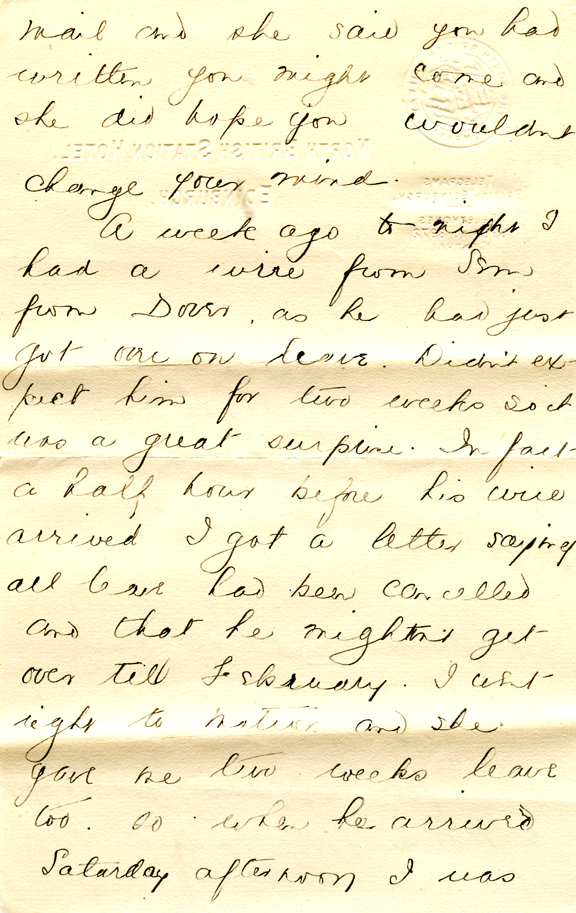 mail and she said you had
written you might come and
she did hope you wouldnt
change your mind.
A week ago to night I
had a wire from
from Dover, as he had just
got over on leave. Didn't ex-
pect him for two weeks so it
was a great surprise. In fact
a half hour before his wire
arrived I got a letter saying
all leave had been cancelled
and that he mightnt get
over till February. I went
right to matron and she
gave me two weeks leave
too. so when he arrived
Saturday afternoon I was
NORTH BRITISH STATION HOTEL
EDINBURGH
TELEGRAMS